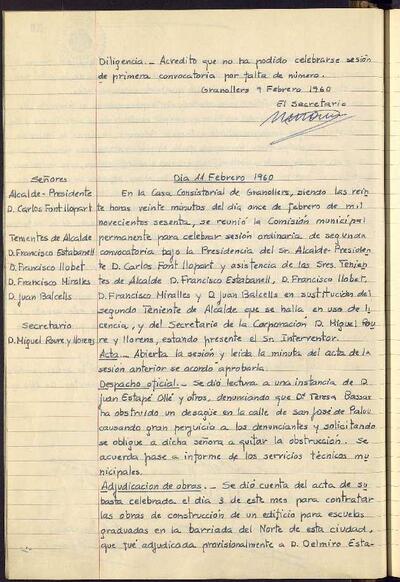 Diligencia._ Acredito que no ha podido celebrarse sesión
de primera convocatoria por falta de número.
Granollers 9 Febrero 1960
El Secretario
Señores
Alcalde-Presidente
D. Carlos Font Llopart
Tementes de Alcalde
D. Francisco Estabanell
D. Francisco Llobet
D. Francisco Miralles
D. Juan Balcells
Secretario
D. Miguel Roure y Llorens
Dia 11 Febrero 1960
En la Casa Consistorial de Granollers, siendo las vein
te horas veinte minutos del día once de febrero de mil
novecientos sesenta, se reunió la Comisión municipal
permanente para celebrar sesión ordinaria de segunda
convocatoria bajo la Presidencia del Sr. Alcalde-Presiden
te D. Carlos Font Llopart y asistencia de los Sres. Tenien
tes de Alcalde D. Francisco Estabanell, D. Francisco Llobet,
D. Francisco Miralles y D. Juan Balcells en sustitución del
segundo Teniente de Alcalde que se halla en uso de li
cencia, y del Secretario de la Corporación D. Miguel Rou
re y Llorens, estando presente el Sr. Interventor.
Acta._ Abierta la sesión y leída la minuta del acta de la
sesión anterior se acordo aprobarla.
Despacho oficial._ Se dió lectura a una instancia de D.
Juan Estapé Ollé y otros, denunciando que Dª Teresa Bassas
ha obstruido un desagüe en la calle de San José de Palou
causando gran perjuicio a los denunciantes y solicitando
se obligue a dicha señora a quitar la obstrucción. Se
acuerda pase a informe de los servicios técnicos mu
nicipales.
Adjudicacion de obras._ Se dió cuenta del acta de su
basta celebrada el dia 3 de este mes para contratar
las obras de construcción de un edificio para escuelas
graduadas en la barriada del Norte de esta ciudad,
que fué adjudicada provisionalmente a D. Delmiro Esta-